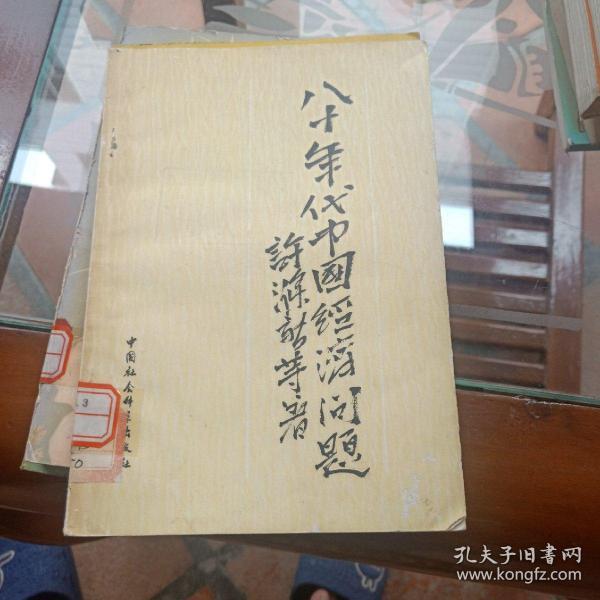 八十年代中國經濟问題
許滌新等著
中国社会科学出版社
.3
孔夫子旧书网
www.kongfz.com